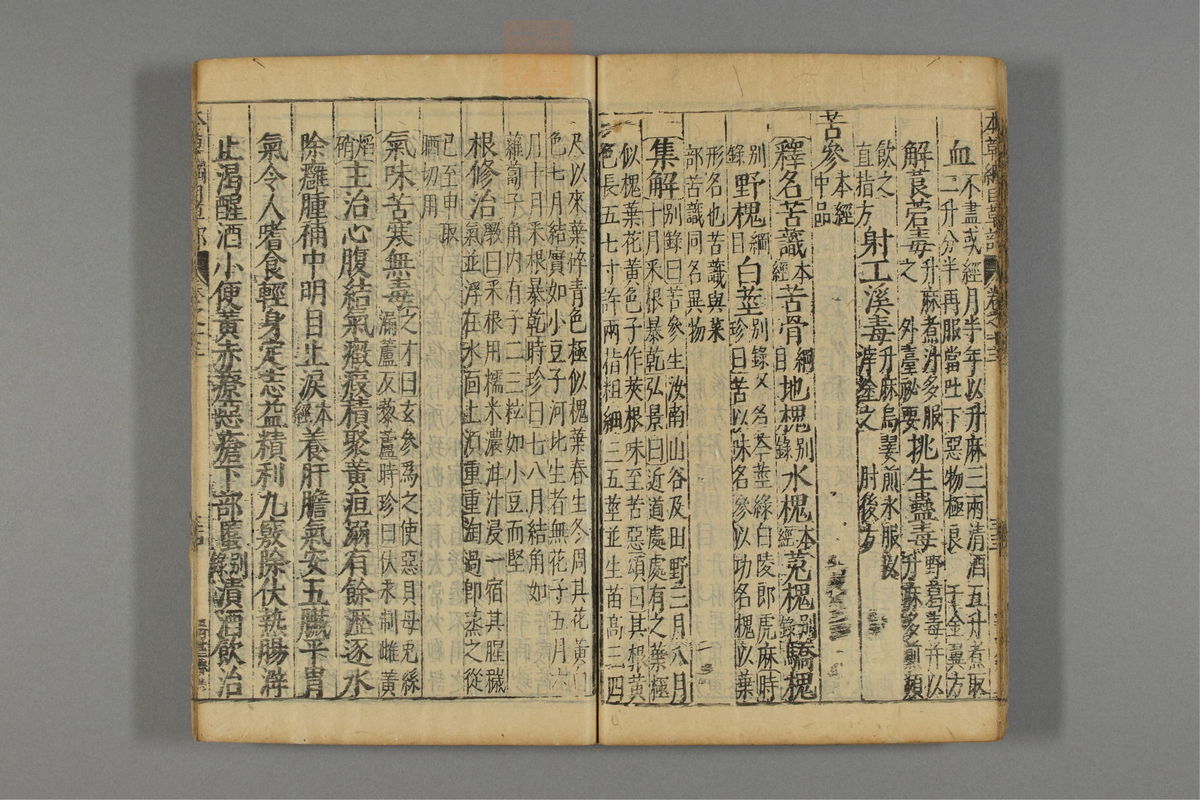 本草綱目草部 卷之十三
血不盡或經月半年以升麻三兩清酒五升煮取
二升分半再服當吐下惡物極良 千金翼方
解莨菪毒升麻煮汁多服之 外臺秘要 挑生蠱毒野葛毒並以升麻多煎頻
飲之 直指方 射工溪毒升麻烏翣煎水服以滓塗之 肘後方
苦參本經中品
釋名苦蘵本經苦骨綱目地槐別錄水槐本經菟槐別錄驕槐
別錄野槐綱目白莖別錄又名岑莖綠白陵郎虎麻時
珍曰苦以味名參以功名槐以葉
形名也苦蘵與菜
部苦蘵同名異物
集解別錄曰苦參生汝南山谷及田野三月八月
十月釆根暴乾弘景曰近道處處有之葉極
似槐葉花黃色子作莢根味至苦惡頌曰其根黃
色長五七寸許兩指粗細三五莖並生苗高三四
尺以來葉碎青色極似槐葉春生冬凋其花黃白
色七月結實如小豆子河北生者無花子五月六
月十月釆根暴乾時珍曰七八月結角如
蘿蔔子角內有子二三粒如小豆而堅
根修治斅曰釆根用糯米濃泔汁浸一宿其腥穢
氣並浮在水面上須重重淘過卽蒸之從
巳至申取
晒切用
氣味苦寒無毒之才曰玄參爲之使惡貝母兔絲
漏蘆反藜蘆時珍曰伏汞制雌黃
焰硝主治心腹結氣癥瘕積聚黃疸溺有餘瀝逐水
除癰腫補中明目止淚本經養肝膽氣安五臟平胃
氣令人嗜食輕身定志益精利九竅除伏熱腸澼
止渴醒酒小便黃赤療惡瘡下部䘌別錄漬酒飲治